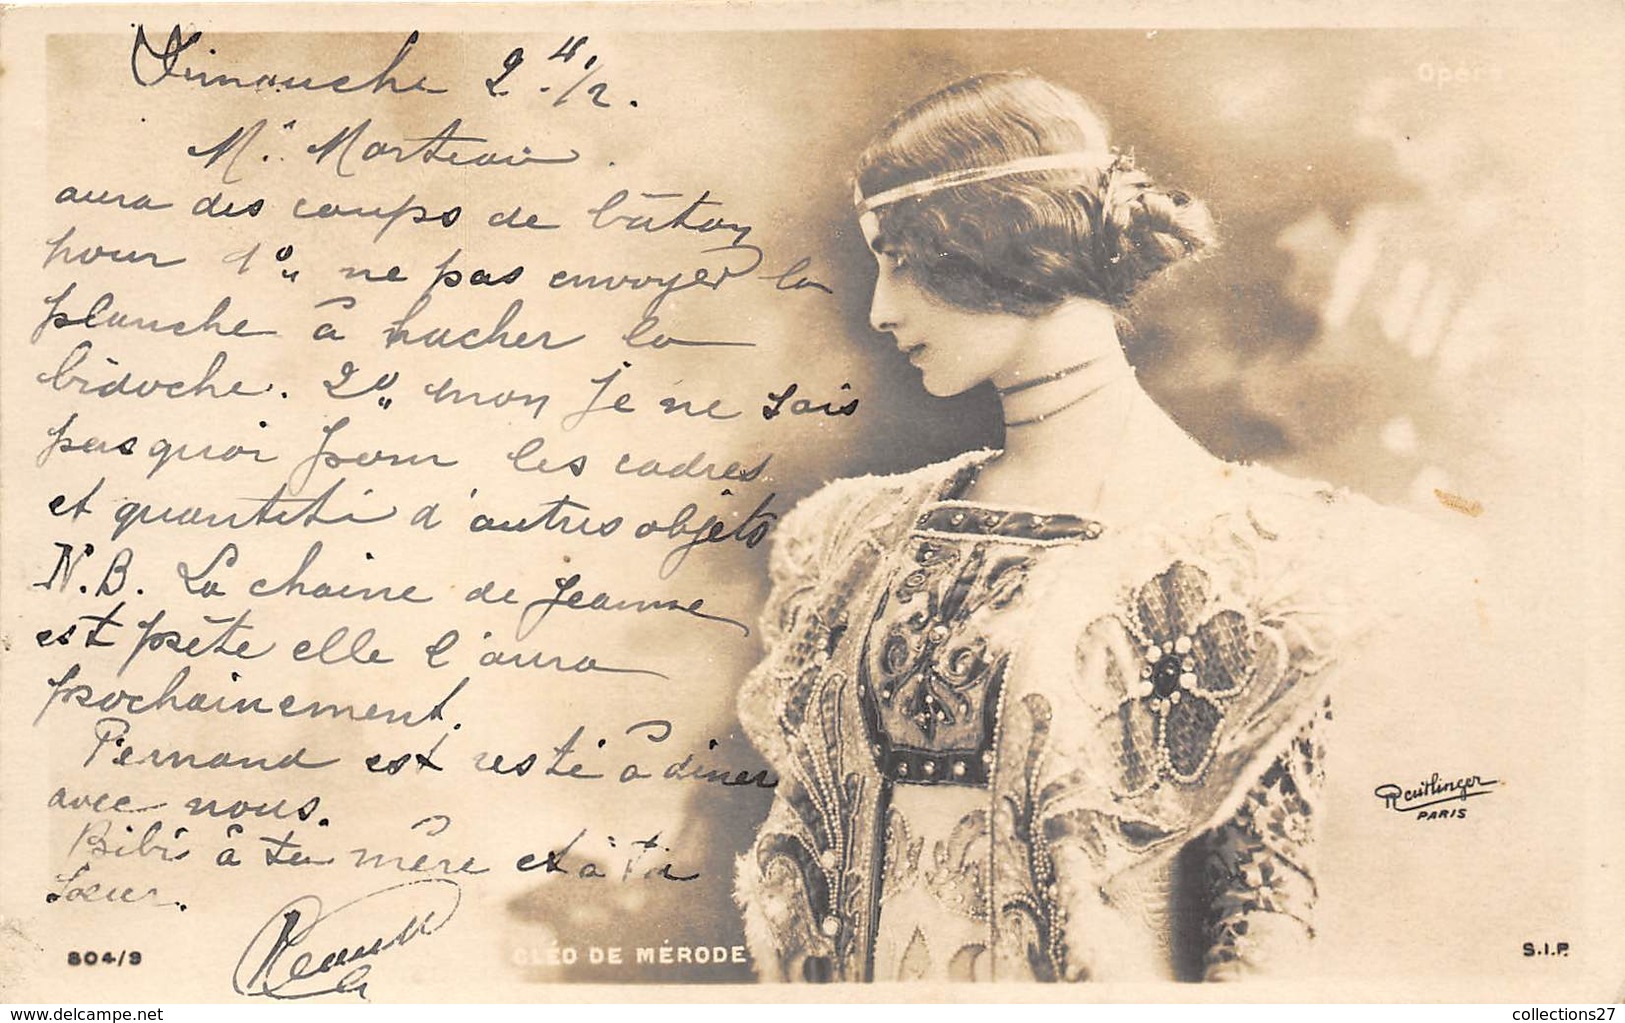 Dimanche 2.H 1/2.
Mr. Morteau.
aura des coups de bâton
pour 1o,, ne pas envoyer la
planche à hacher la
bidoche. 2o,, mon je ne sais
pas quoi pour les cadres
et quantité d'autres objets
N.B. La chaine de Jeanne
est prête elle l'aura
prochainement.
Fernand est resté à diner
avec nous.
Bibi à ta mère et à ta
soeur.
Opéra
Reutlinger
PARIS
804/9
CLÉO DE MÉRODE
S.I.P.
www.delcampe.net
collections27